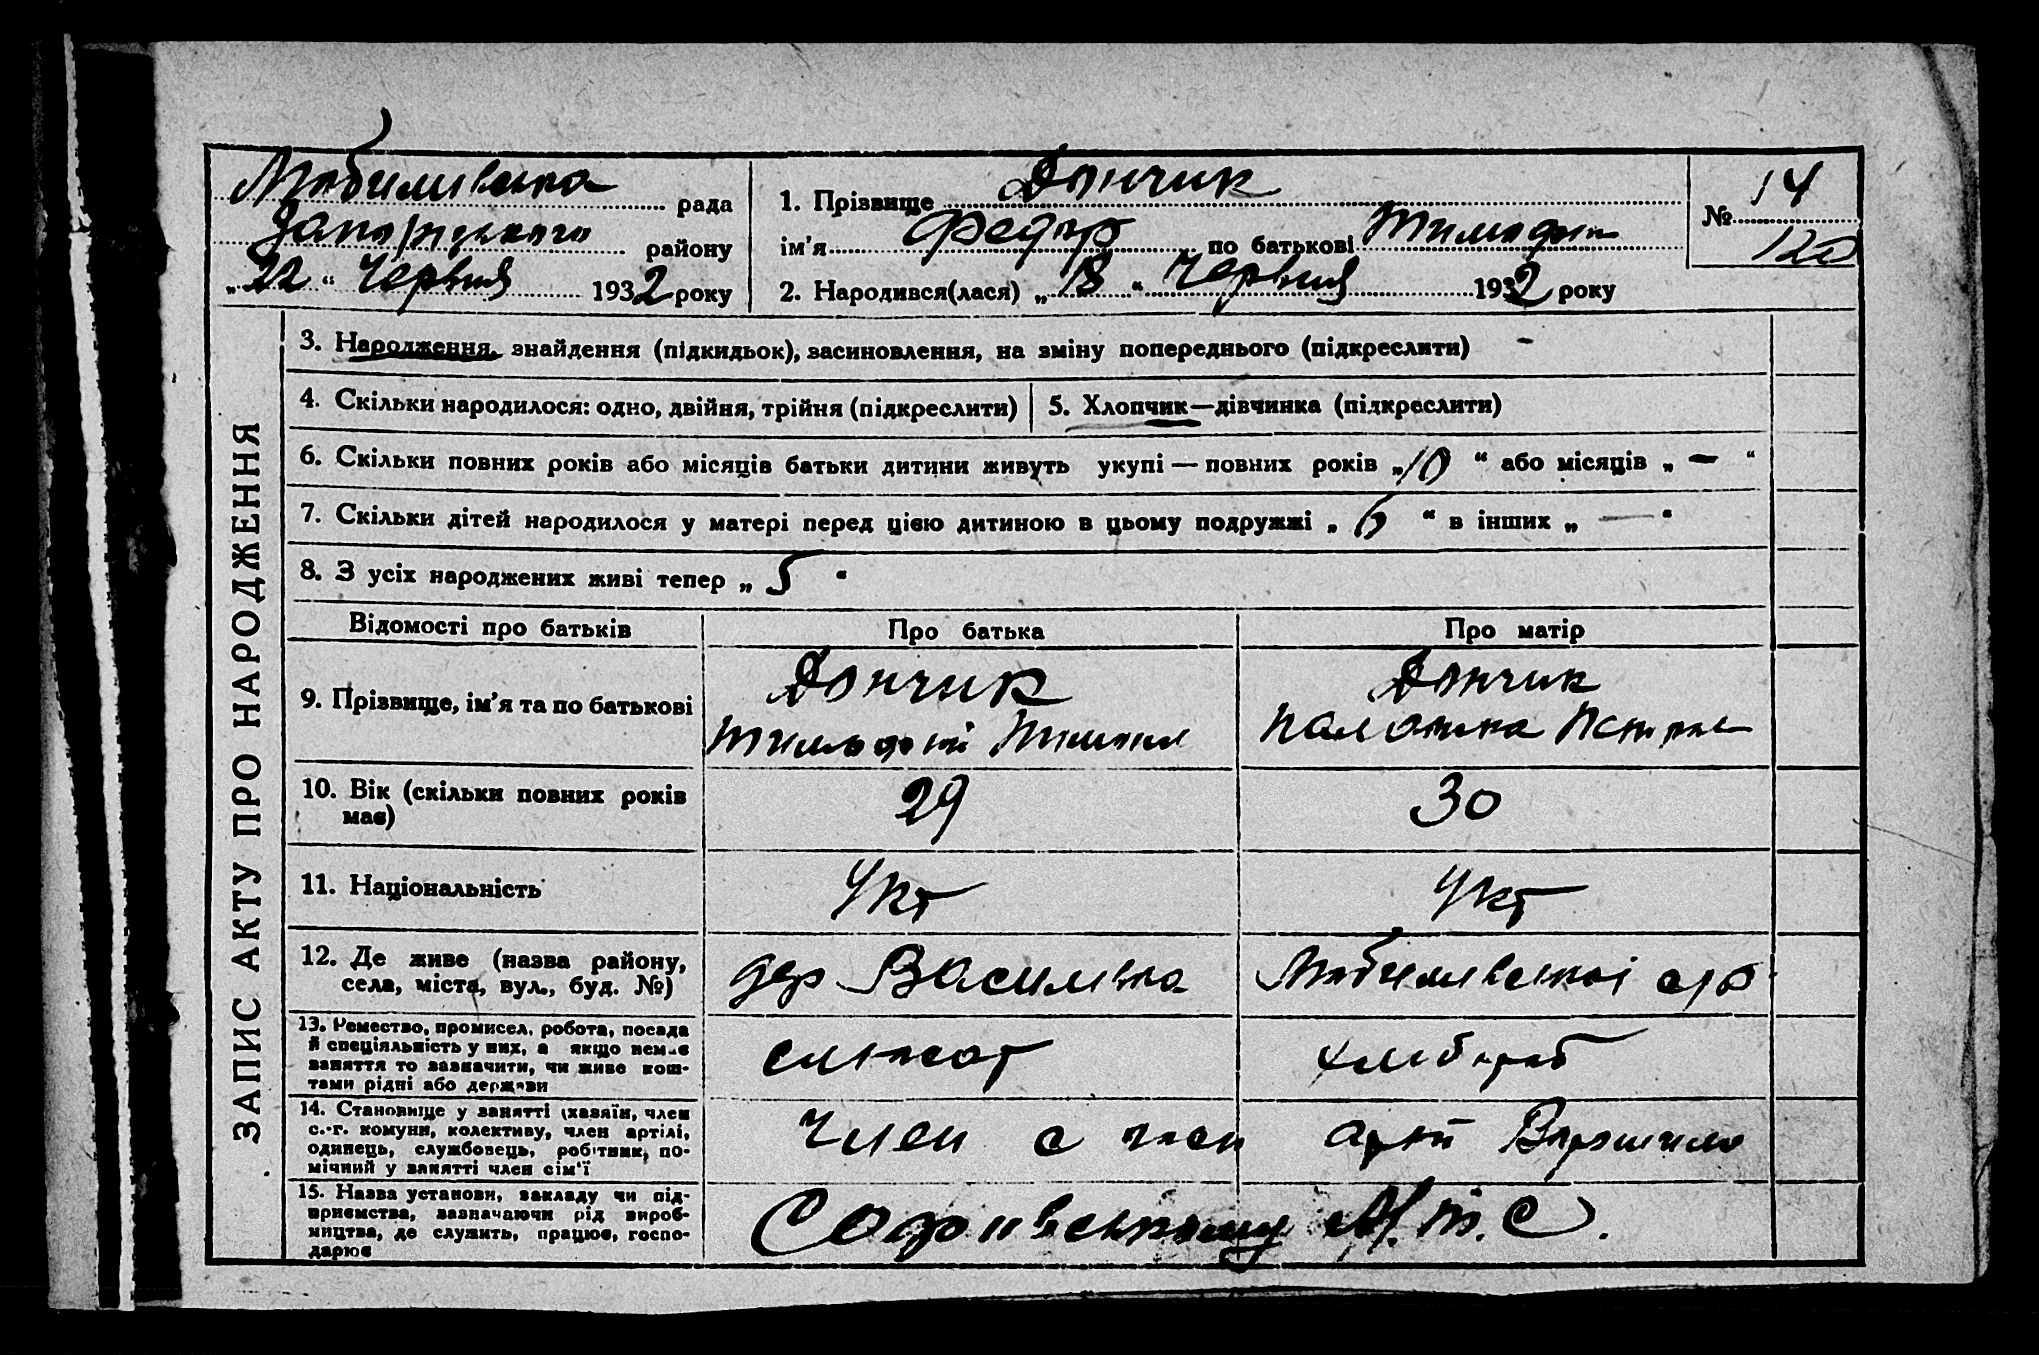 рада
району
„22“ Червня 1932 року
1. Прізвище Дончик
ім'я Федор по батькові
2. Народився(лася) „18“ Червня 1932 року
№ 14
120
ЗАПИС АКТУ ПРО НАРОДЖЕННЯ
3. Народження, знайдення (підкидьок), засиновлення, на зміну попереднього (підкреслити) -
4. Скільки народилося: одно, двійня, трійня (підкреслити)
5. Хлопчик—дівчинка (підкреслити)
6. Скільки повних років або місяців батьки дитини живуть укупі — повних років „10“ або місяців „-“
7. Скільки дітей народилося у матері перед цією дитиною в цьому подружжі „6“ в інших „—“
8. З усіх народжених живі тепер „5“
Відомості про батьків
Про батька
Про матір
9. Прізвище, ім'я та по батькові
Дончик
Дончик
10. Вік (скільки повних років
має)
29
30
11. Національність
Укр
Укр
12. Де живе (назва району,
села, міста, вул., буд. №)
дер Василівка
13. Ремество, промисел, робота, посада
й спеціяльність у них, а якщо немає
заняття то зазначити, чи живе кош-
тами рідні або держави
хлібороб
14. Становище у занятті (хазяїн, член
с.-г. комуни, колективу, член артілі,
одинець, службовець, робітник, по-
мічний у занятті член сім'ї
Член с
15. Назва установи, закладу чи під-
приємства, зазначаючи рід вироб-
ництва, де служить, працює, госпо-
дарює
Софиевському М.т.С.